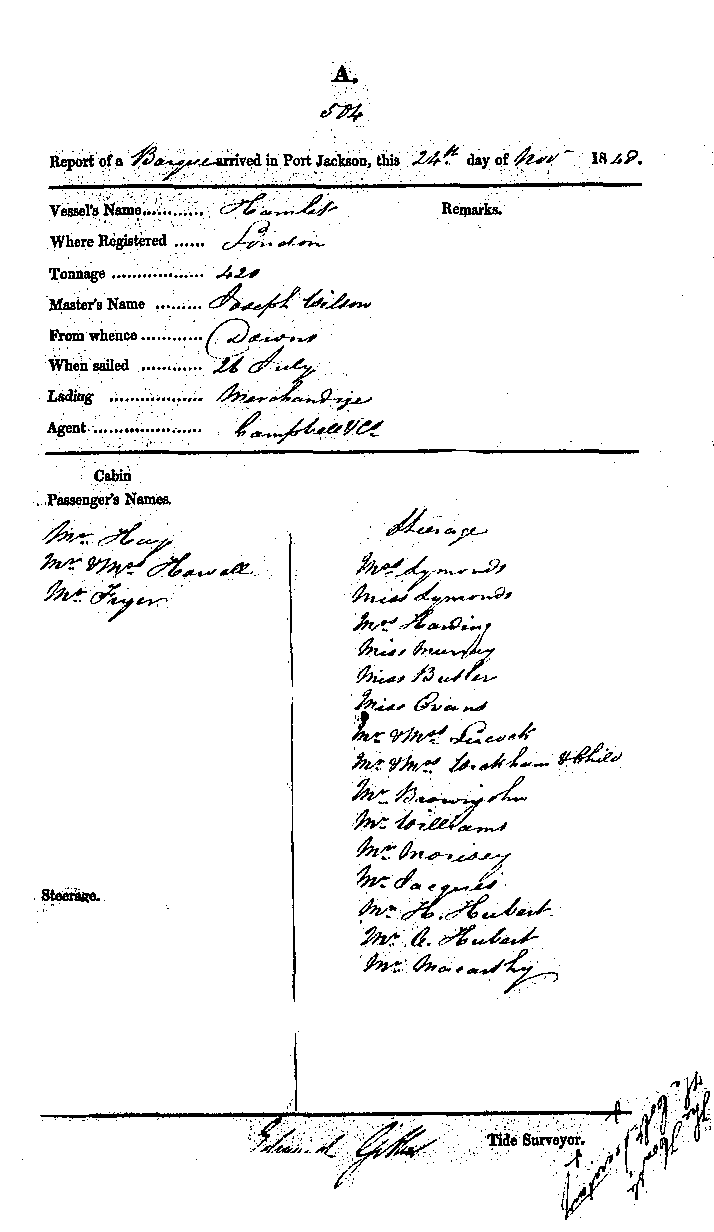 A.
504
Report of a Barque arrived in Port Jackson, this 24th day of Nov 1848.
Vessel's Name........... Hamlet Remarks.
Where Registered ...... London
Tonnage .................. 420
Master's Name ......... Joseph Wilson
From whence............ Downs
When sailed ............ 26 July
Lading .................. Merchandize
Agent ..................... Campbell & Co
Cabin
Passenger's Names.
Mr. Hay
Mr. & Mrs Howell
Mr Fryer
Steerage
Mrs Symonds
Miss Symonds
Mrs Harding
Miss Murray
Miss Butler
Miss Evans
Mr & Mrs
Mr. & Mrs Wrakham & Child
Mr. Brownjohn
Mr. Williams
Mr. Morisey
Mr. Jacques
Mr. H. Hubert
Mr. A. Hubert
Mr. Macarthy
Steerage.
Tide Surveyor.